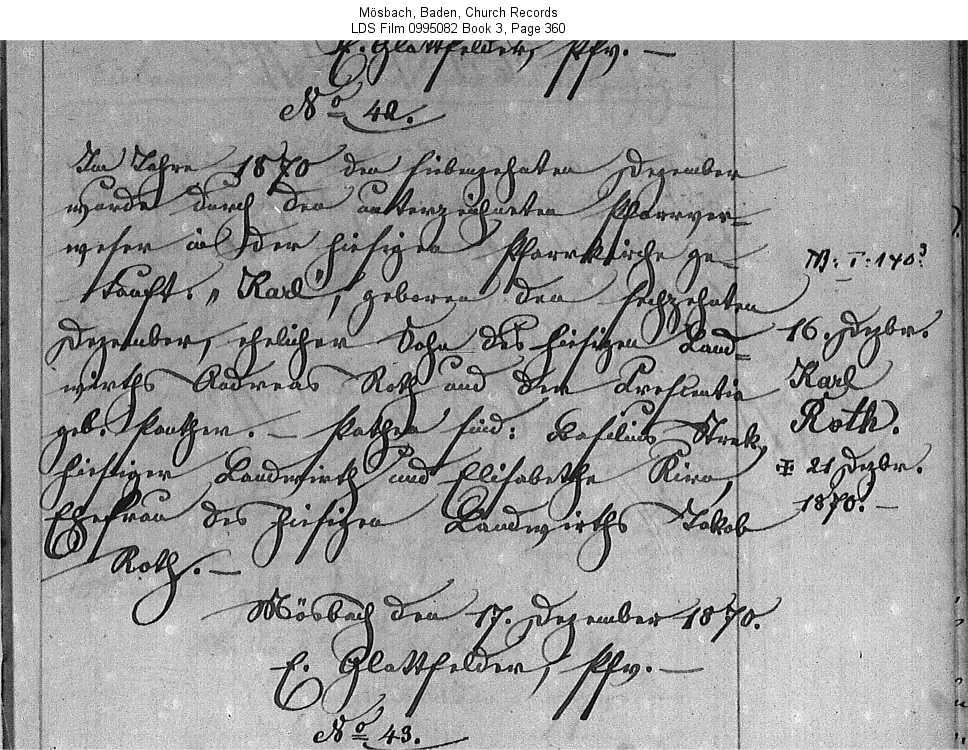 Mösbach, Baden, Church Records
LDS Film 0995082 Book 3, Page 360
E. Glattfelder, Pfv. —
No 42.
Im Jahre 1870 den siebenzehnten Dezember
wurde durch den unterzeichneten Pfarrver-
weser in der hiesigen Pfarrkirche ge-
tauft: „Karl", geboren den sechzehnten
Dezember, ehelicher Sohn des hiesigen Land-
wirths Andreas Roth und der Kreszentia
geb. Panther. — Pathen sind: Basilius Strek,
hiesiger Landwirth und Elisabetha Kirn,
Ehefrau des hiesigen Landwirths Jakob
Roth. —
Mösbach den 17. Dezember 1870.
E. Glattfelder, Pfv. —
No 43.
16. Dezbr.
Karl
Roth.
21 Dezbr.
1870. —